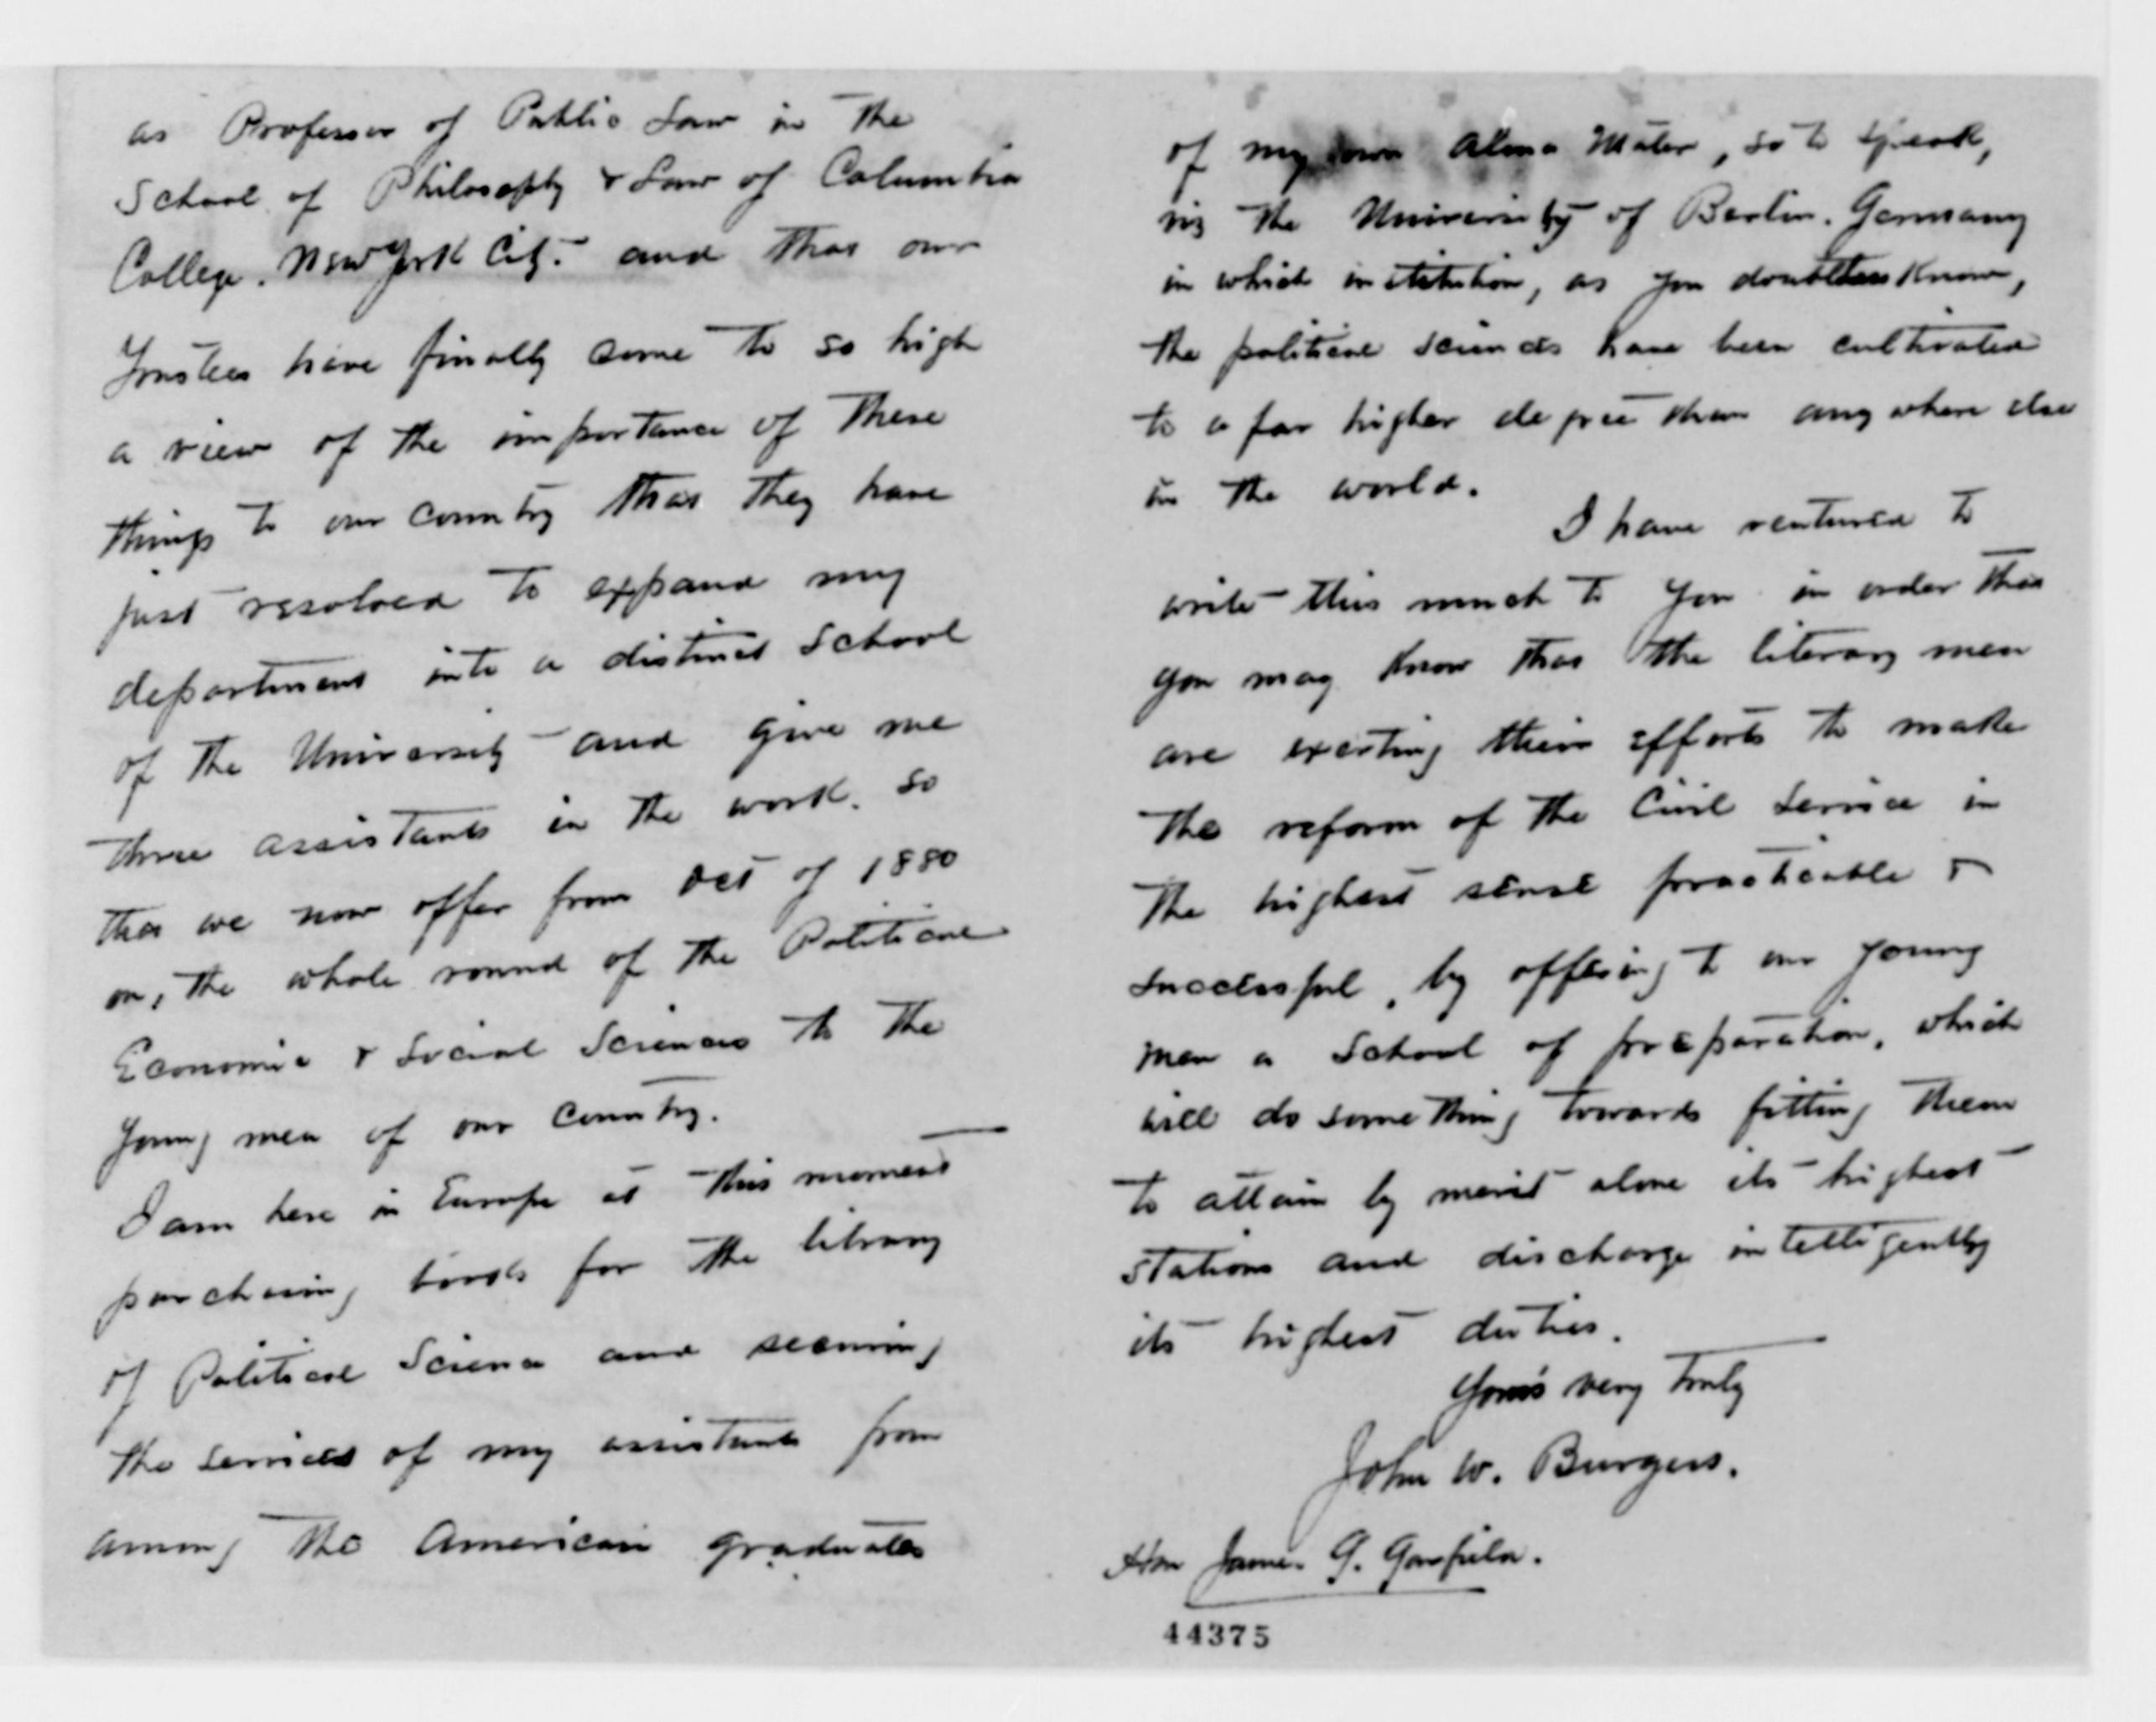 as Professor of Public Law in the
School of Philosophy & Law of Columbia
College. New York City. and that our
Trustees have finally come to so high
a view of the importance of these
things to our country that they have
just resolved to expand my
department into a distinct School
of the University and give me
three assistants in the work. so
that we now offer from Oct of 1880
on, the whole round of the Political
Economic & Social Sciences to the
young men of our country.
I am here in Europe at this moment
purchasing books for the library
of Political Science and securing
the services of my assistants from
among the American graduates
of my own Alma Mater, so to speak,
viz the University of Berlin. Germany
in which institution, as you doubtless know,
the political sciences have been cultivated
to a far higher degree than any where else
in the world.
I have ventured to
write this much to you in order that
you may know that the literary men
are exerting their efforts to make
the reform of the Civil Service in
the highest sense practicable &
successful, by offering to our young
men a School of preparation, which
will do something towards fitting them
to attain by merit alone its highest
stations and discharge intelligently
its highest duties.
Yours very truly
John W. Burgess.
Hon James. G. Garfield.
44375